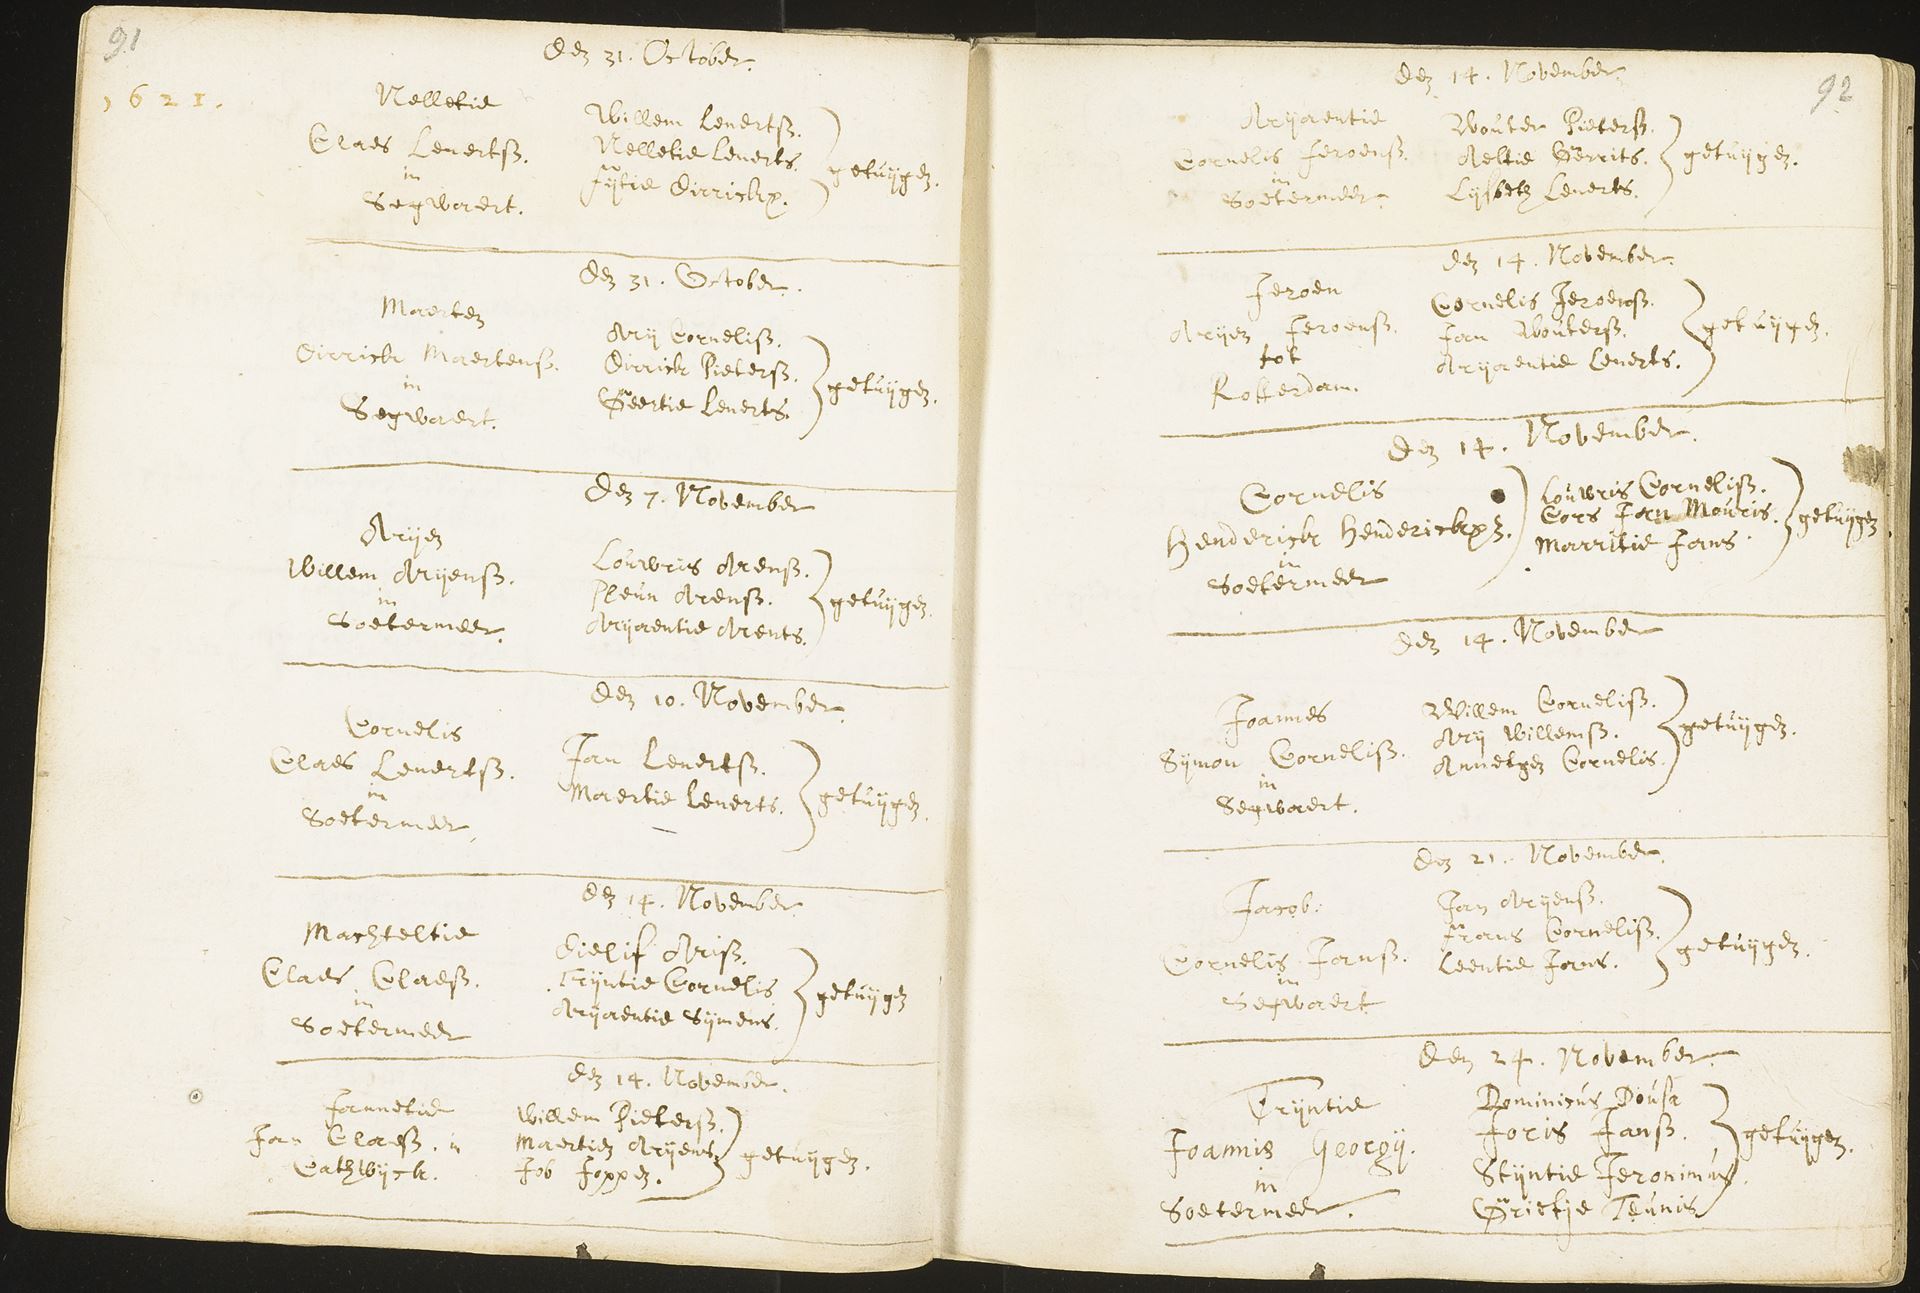 91
1621.
Den 31. October.
Nelletie
Claes Lenertsß.
in
Segwaert.
Willem Lenertsß.
Nelletie Lenerts.
Fijtie Dirricks.
getuijgen.
Den 31. October.
Maerten
Dirrick Maertensß.
in
Segwaert.
Arij Cornelisß.
Dirrick Pietersß.
Geertie Lenerts.
getuijgen.
Den 7. November
Arijen
Willem Arijensß.
in
Soetermeer.
Louwris Arensß.
Pleun Arensß.
Arijaentie Arents.
getuijgen.
Den 10. November.
Cornelis
Claes Lenertsß.
in
Soetermeer.
Jan Lenertsß.
Maertie Lenerts.
getuijgen.
Den 14. November.
Machteltie
Claes Claesß.
in
Soetermeer
Dielif Arisß.
Trijntie Cornelis
Arijaentie Sijmens.
getuijgen
Den 14. November.
Jannetie
Jan Claesß. in
Cathwijck.
Willem Pietersß.
Maertien Arijens
Job Joppen.
getuijgen.
92
Den 14. November.
Arijaentie
Cornelis Jeroensß.
in
Soetermeer.
Wouter Pietersß.
Aeltie Gerrits.
Lijsbeth Lenerts.
getuijgen.
Den 14. November.
Jeroen
Arijen Jeroensß.
tot
Rotterdam.
Cornelis Jeroensß.
Jan Woutersß.
Arijaentie Lenerts.
getuijgen.
Den 14. November.
Cornelis
Henderick Hendericksz.
in
Soetermeer
Louwris Cornelisß.
Cors Jan Mouris.
Marritie Jans.
getuijgen
Den 14. November
Joannes
Sijmon Cornelisß.
in
Segwaert.
Willem Cornelisß.
Arij Willemsß.
Annetgen Cornelis.
getuijgen.
Den 21. November.
Jacob.
Cornelis Jansß.
in
Segwaert
Jan Arijensß.
Frans Cornelisß.
Leentie Jans.
getuijgen.
Den 24. November.
Trijntie
Joannis Georgij.
in
Soetermeer.
Dominicus Dousa
Joris Jansß.
Stijntie Jeronimus.
Grietje Teunis
getuijgen.